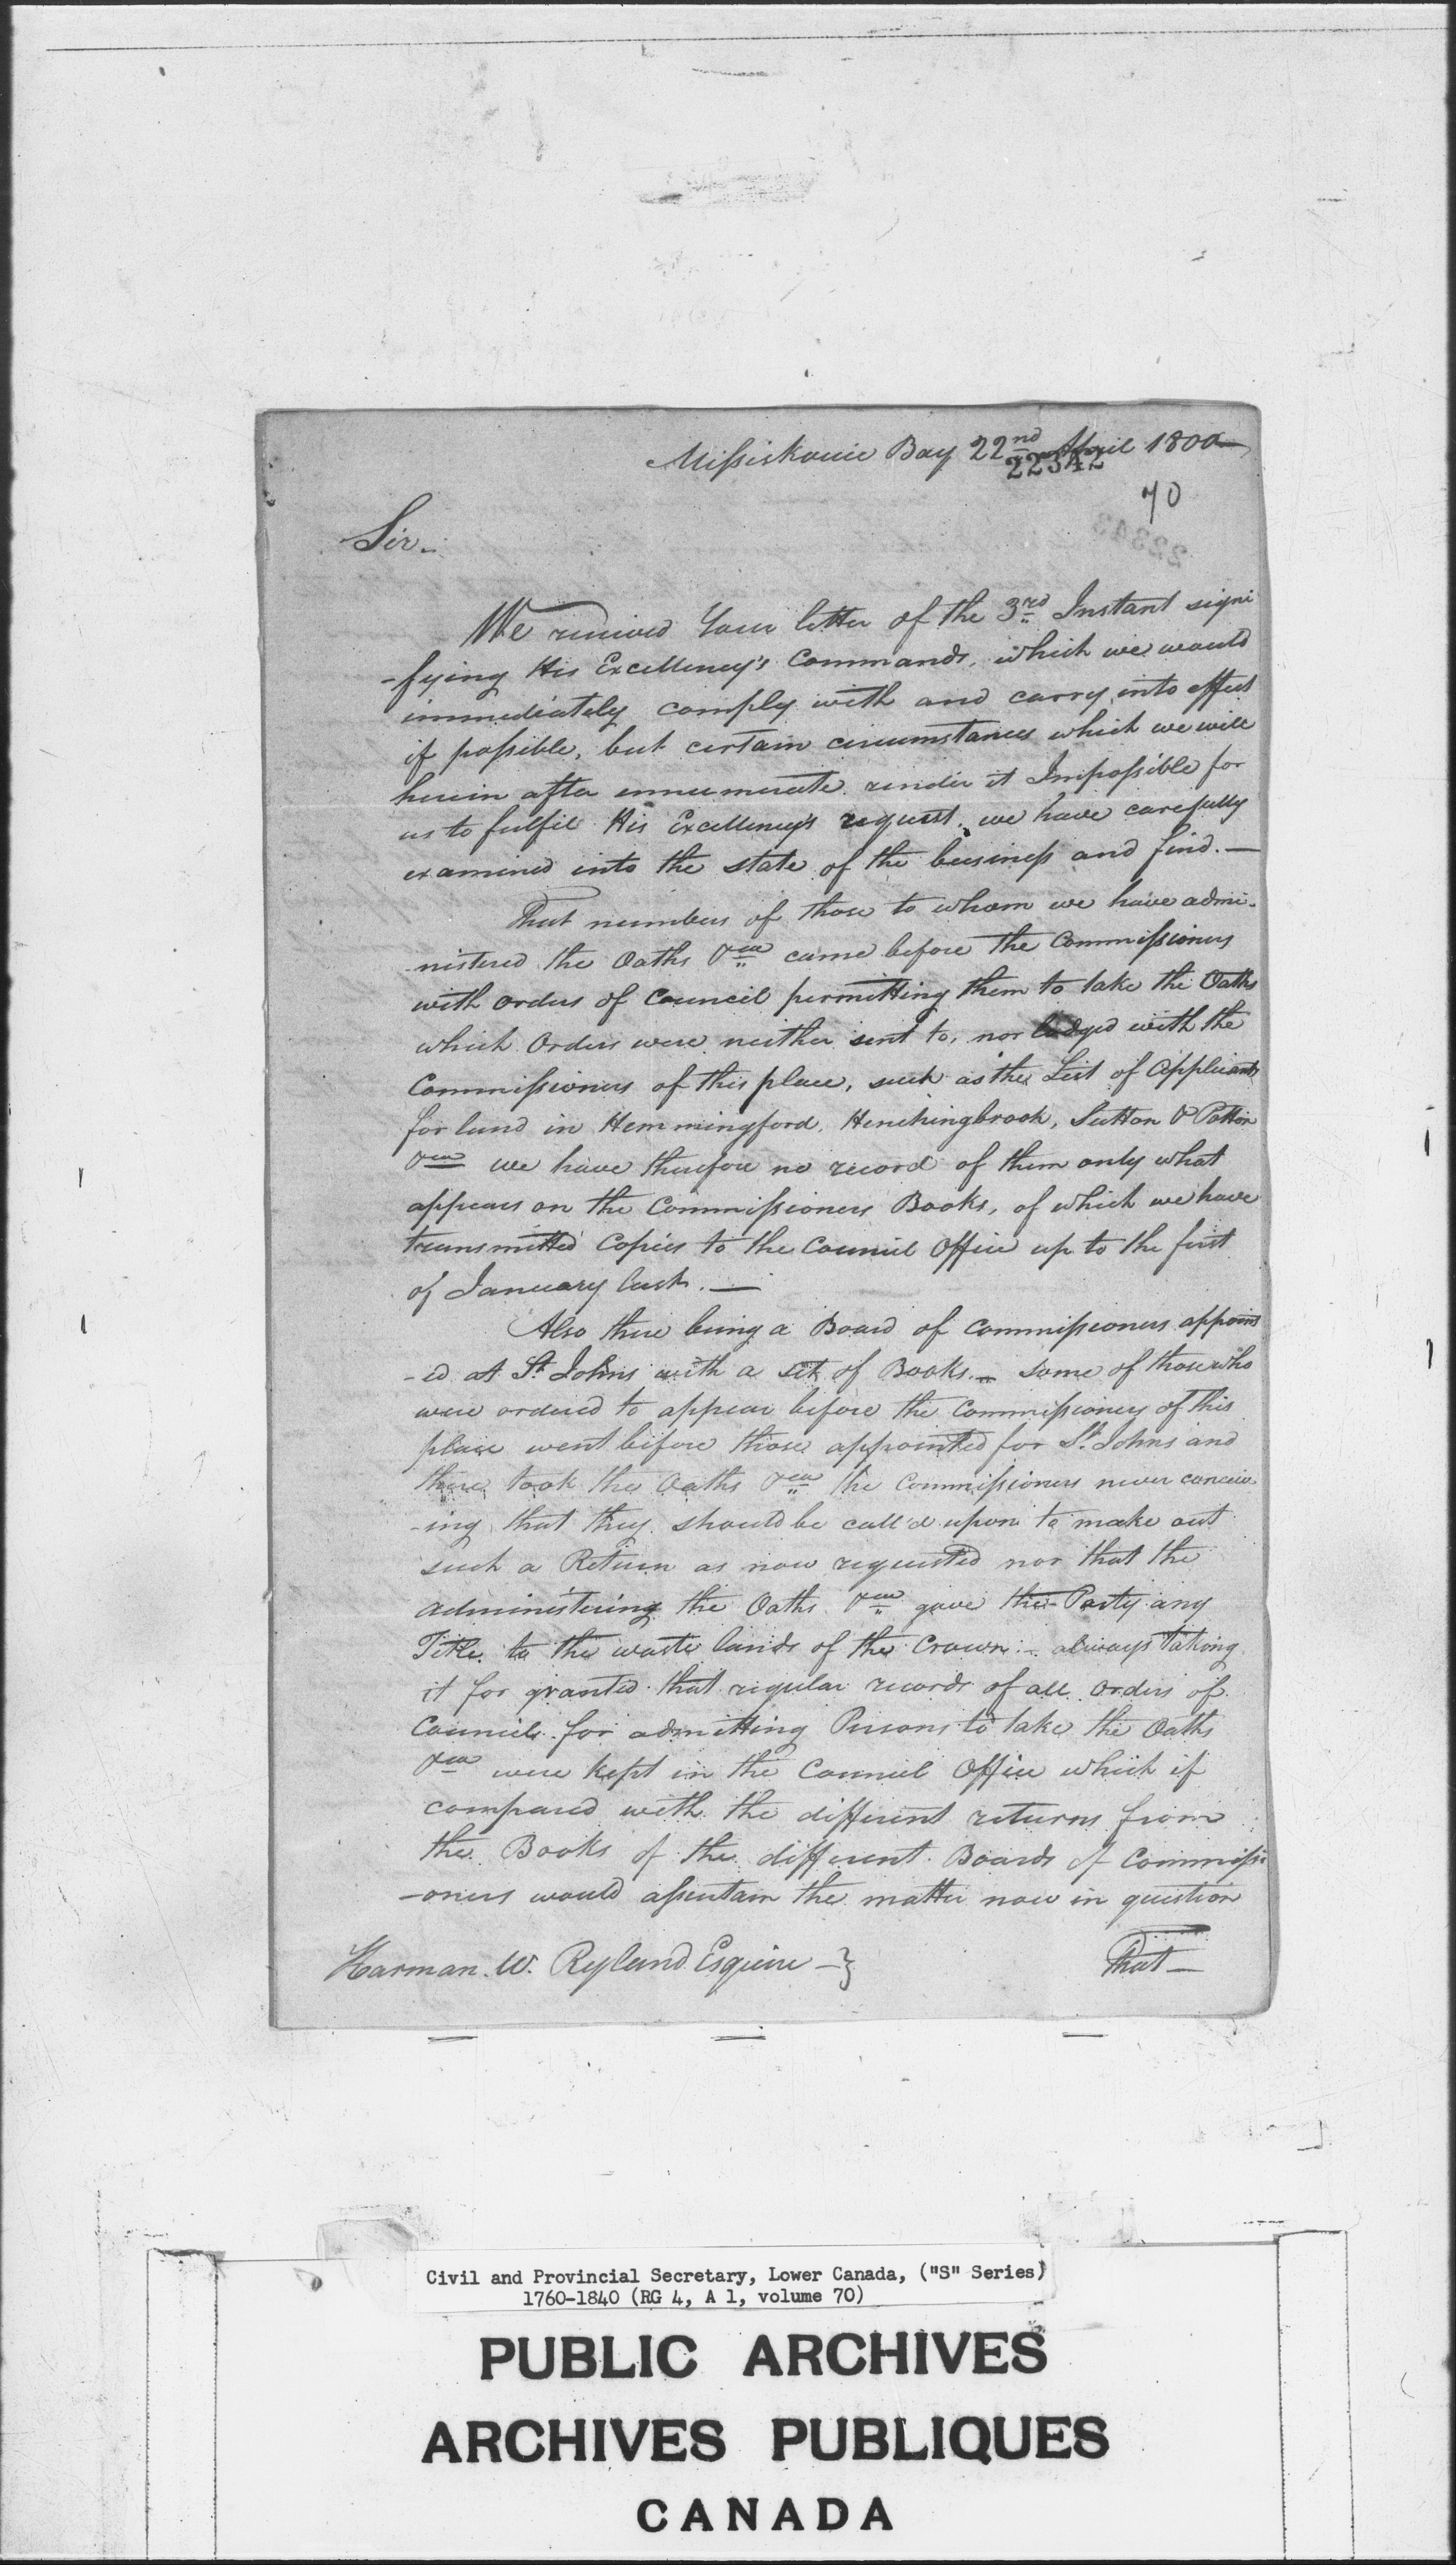 Missiskouie Bay 22nd April 1800
22342
70
22343
Sir
We received Your letter of the 3rd Instant signi
-fying His Excellency's Commands, which we would
immediately comply with and carry into effect
if possible, but certain circumstances which we will
herein after ennumerate render it Impossible for
us to fulfil His Excellency's request. we have carefully
examined into the state of the business and find. —
That numbers of those to whom we have admi-
-nistered the Oaths &ca came before the Commissioners
with orders of Council permitting them to take the Oaths
which Orders were neither sent to, nor lodged with the
Commissioners of this place, such as the List of Applicants
for land in Hemmingford, Henchingbrook, Sutton & Potton
&ca we have therefore no record of them only what
appears on the Commissioners Books, of which we have
transmitted Copies to the Council Office up to the first
of January last. —
Also there being a Board of Commissioners appoint
-ed at St. Johns with a set of Books. — some of those who
were ordered to appear before the Commissioners of this
place went before those appointed for St. Johns and
there took the Oaths &ca the Commissioners never conceiv
-ing that they should be call'd upon to make out
such a Return as now requested nor that the
administering the Oaths &ca gave the Party any
Title to the waste lands of the Crown: - always taking
it for granted that regular records of all orders of
Council for admitting Persons to take the Oaths
&ca were kept in the Council Office which if
compared with the different returns from
the Books of the different Boards of Commissi
-oners would assertain the matter now in question
That —
Harman. W. Ryland Esquire — }
Civil and Provincial Secretary, Lower Canada, ("S" Series)
1760-1840 (RG 4, A 1, volume 70)
PUBLIC ARCHIVES
ARCHIVES PUBLIQUES
CANADA